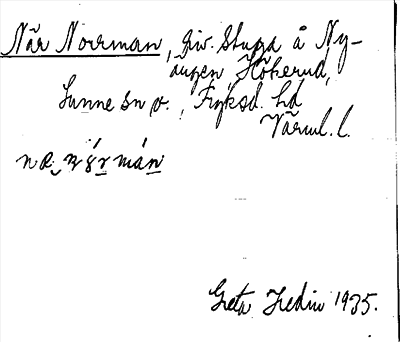 När Norrman, giv. Stuga å Ny-
ängen Hökerud,
Sunne sn o., Fryksd. hd
Värml. l.
Greta Hedin 1935.